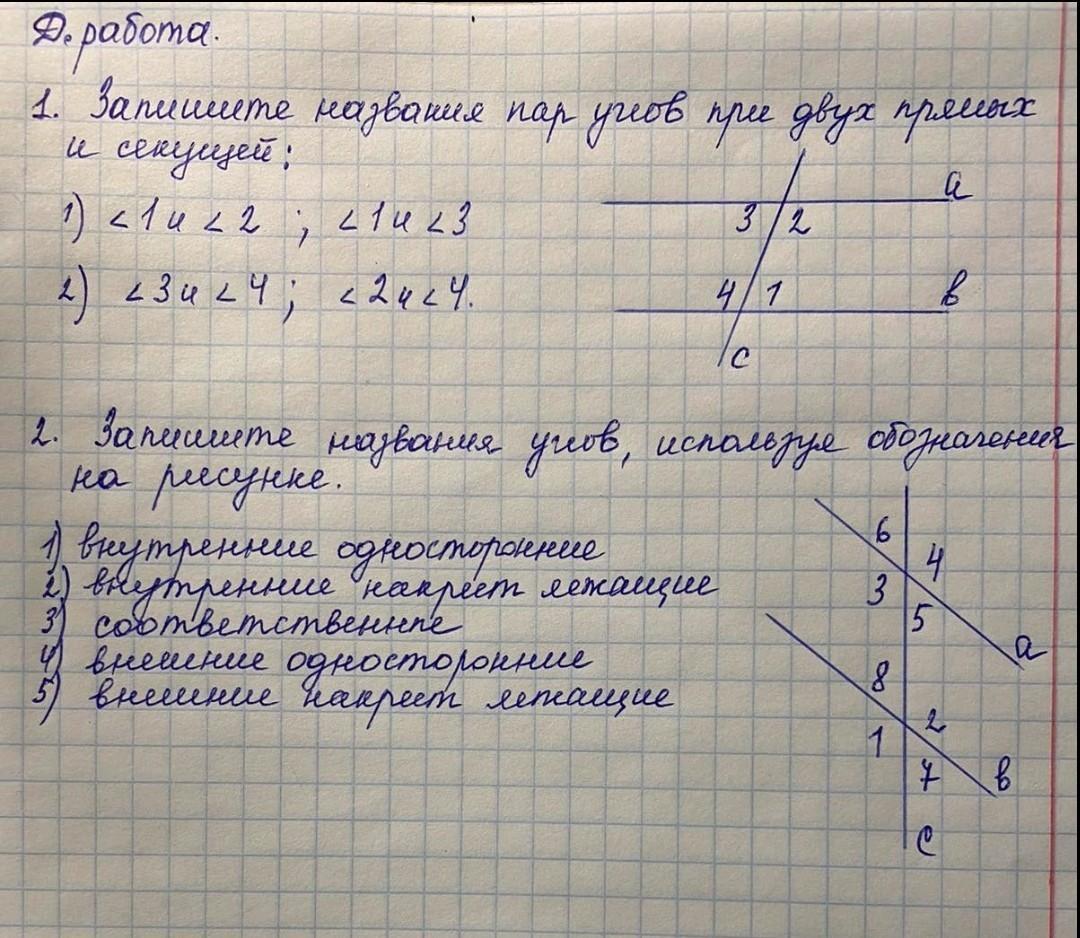 Д. работа.
1. Запишите названия пар углов при двух прямых
и секущей:
1) <1 и <2 ; <1 и <3
2) <3 и <4 ; <2 и <4.
a
3 2
4 1 b
c
2. Запишите названия углов, используя обозначения
на рисунке.
1) внутренние односторонние
2) внутренние накрест лежащие
3) соответственные
4) внешние односторонние
5) внешние накрест лежащие
6 4
3 5
a
8 2
1 7 b
c